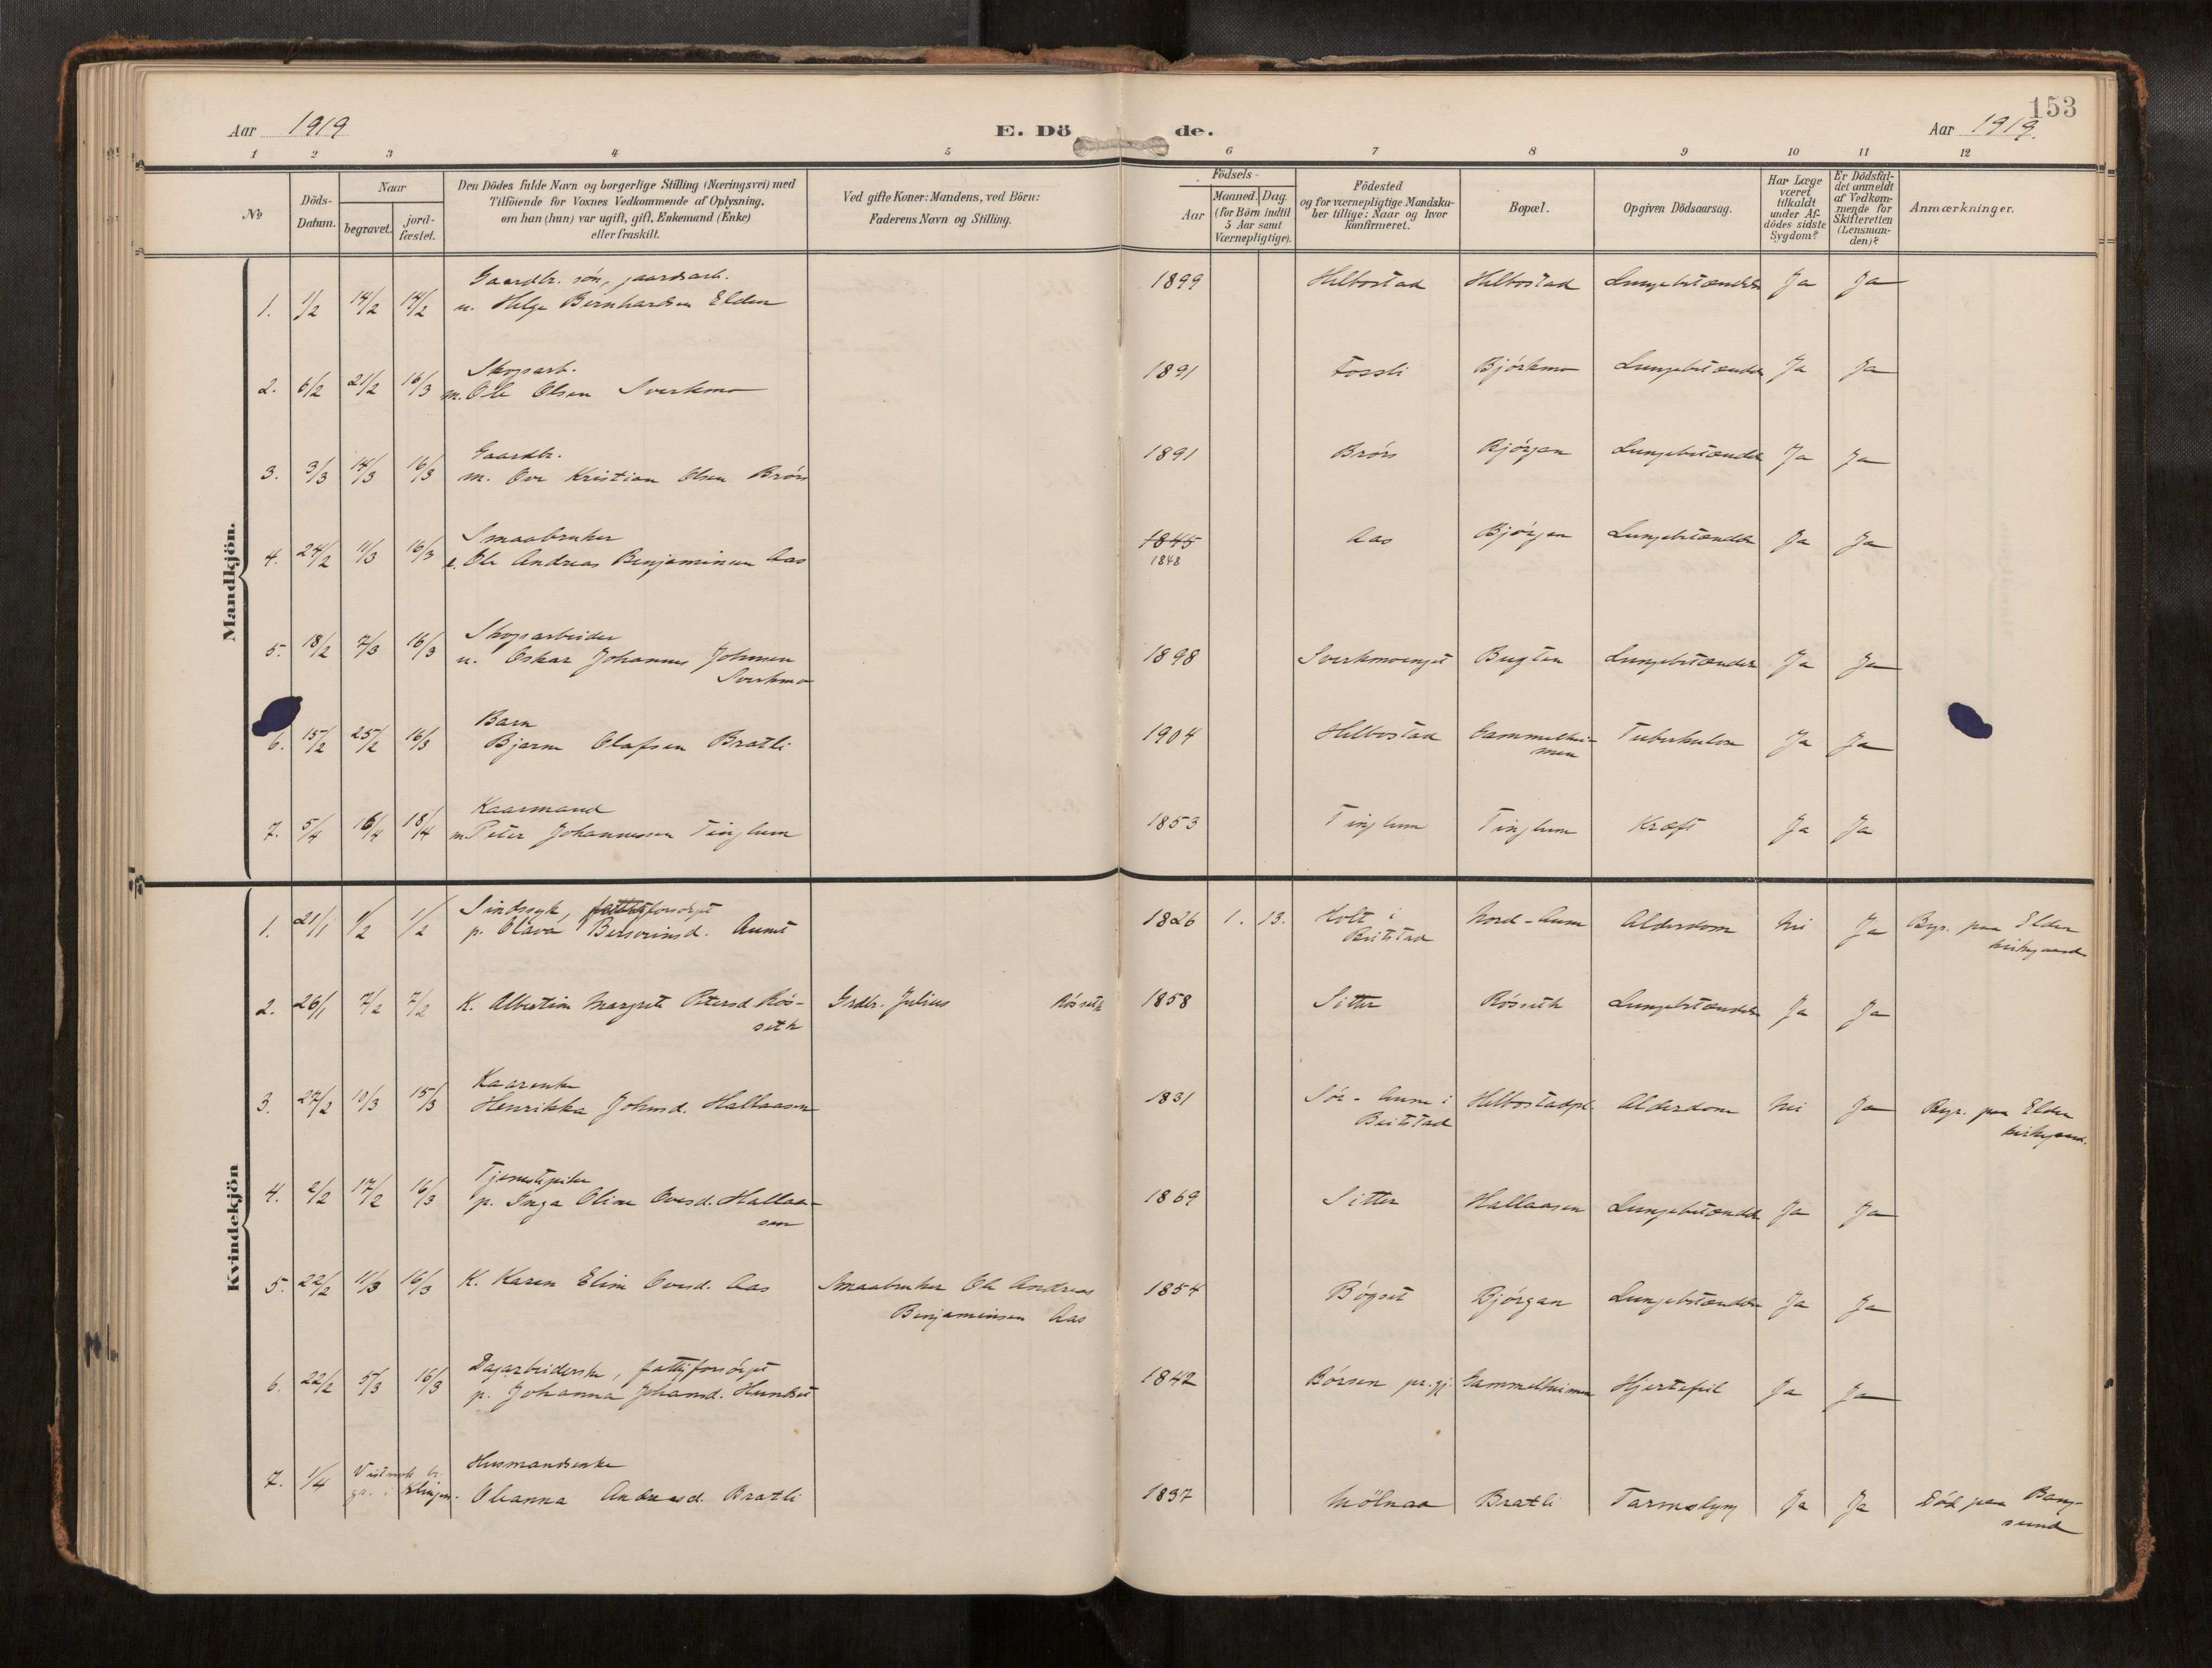 153
Aar 1919
E. Dö de.
Aar 1919.
1 2 3 4 5 6 7 8 9 10 11 12
№
Döds-Datum.
Naar
begravet.
jord-fæstet.
Den Dödes fulde Navn og borgerlige Stilling (Næringsvei) med
Tilföiende for Voxnes Vedkommende af Oplysning,
om han (hun) var ugift, gift, Enkemand (Enke)
eller fraskilt.
Ved gifte Koner: Mandens, ved Börn:
Faderens Navn og Stilling.
Födsels-
Aar
Maaned. Dag.
(for Börn indtil
5 Aar samt
Værnepligtige).
Födested
og for værnepligtige Mandska-
ber tillige: Naar og hvor
konfirmeret.
Bopæl.
Opgiven Dödsaarsag.
Har Læge
været
tilkaldt
under Af-
dödes sidste
Sygdom?
Er Dödsfal-
det anmeldt
af Vedkom-
mende for
Skifteretten
(Lensman-
den)?
Anmærkninger.
Mandkjön.
Gaardbr. søn, gaardsarb.
1. 1/2 14/2 14/2 u. Helge Bernhardsen Elden 1899 Helbostad Helbostad Lungebetændelse Ja Ja
Skogsarb.
2. 6/2 21/2 16/3 m. Ole Olsen Sverkmo 1891 Fossli Bjørkmo Lungebetændelse Ja Ja
Gaardbr.
3. 3/3 14/3 16/3 m. Ove Kristian Olsen Brørs 1891 Brørs Bjørgan Lungebetændelse Ja Ja
Smaabruker
4. 24/2 11/3 16/3 e. Ole Andreas Benjaminsen Aas 1845 Aas Bjørgan Lungebetændelse Ja Ja
1848
Skogsarbeider
5. 18/2 7/3 16/3 u. Oskar Johannes Johnsen 1898 Sverkmoenget Bugten Lungebetændelse Ja Ja
Sverkmo
Barn
6. 15/2 25/2 16/3 Bjarne Olafsen Bratli 1904 Helbostad Gammelhei-
men Tuberkulose Ja Ja
Kaarmand
7. 5/4 16/4 18/4 m. Peter Johannessen Tinglum 1853 Tinglum Tinglum Kræft Ja Ja
Kvindekjön
Sindssyk, fattigforsørget
1. 21/1 1/2 1/2 p. Olava Bersvensd. Aunet 1826 1. 13. Holt i
Beitstad Nord-Aun Alderdom Nei Ja Begr. paa Elden
kirkegaard
2. 26/1 7/2 7/2 K. Albertine Margrete Petersd. Røs-
seth Grdbr. Julius Røsseth 1858 Sitter Røsseth Lungebetændelse Ja Ja
Kaarenke
3. 27/2 10/3 15/3 Henrikka Johnsd. Hallaasen 1831 Sør-Aun i
Beitstad Helbostadpl. Alderdom Nei Ja Begr. paa Elden
kirkegaard.
Tjenestepike
4. 2/2 17/2 16/3 p. Inga Oline Ovesd. Hallaa-
sen 1869 Sitter Hallaasen Lungebetændelse Ja Ja
5. 22/2 11/3 16/3 K. Karen Eline Ovesd. Aas Smaabruker Ole Andreas
Benjaminsen Aas 1854 Bøgset Bjørgan Lungebetændelse Ja Ja
Dagarbeiderske, fattigforsørget
6. 22/2 5/3 16/3 p. Johanna Johansd. Hundset 1842 Børsen pr.gj. Gammelheimen Hjertefeil Ja Ja
Husmandsenke
7. 1/4 Vistnok be-
gr. i Klingen. Oleanna Andreasd. Bratli 1837 Mölnaa Bratli Tarmslyng Ja Ja Död paa Bang-
sund